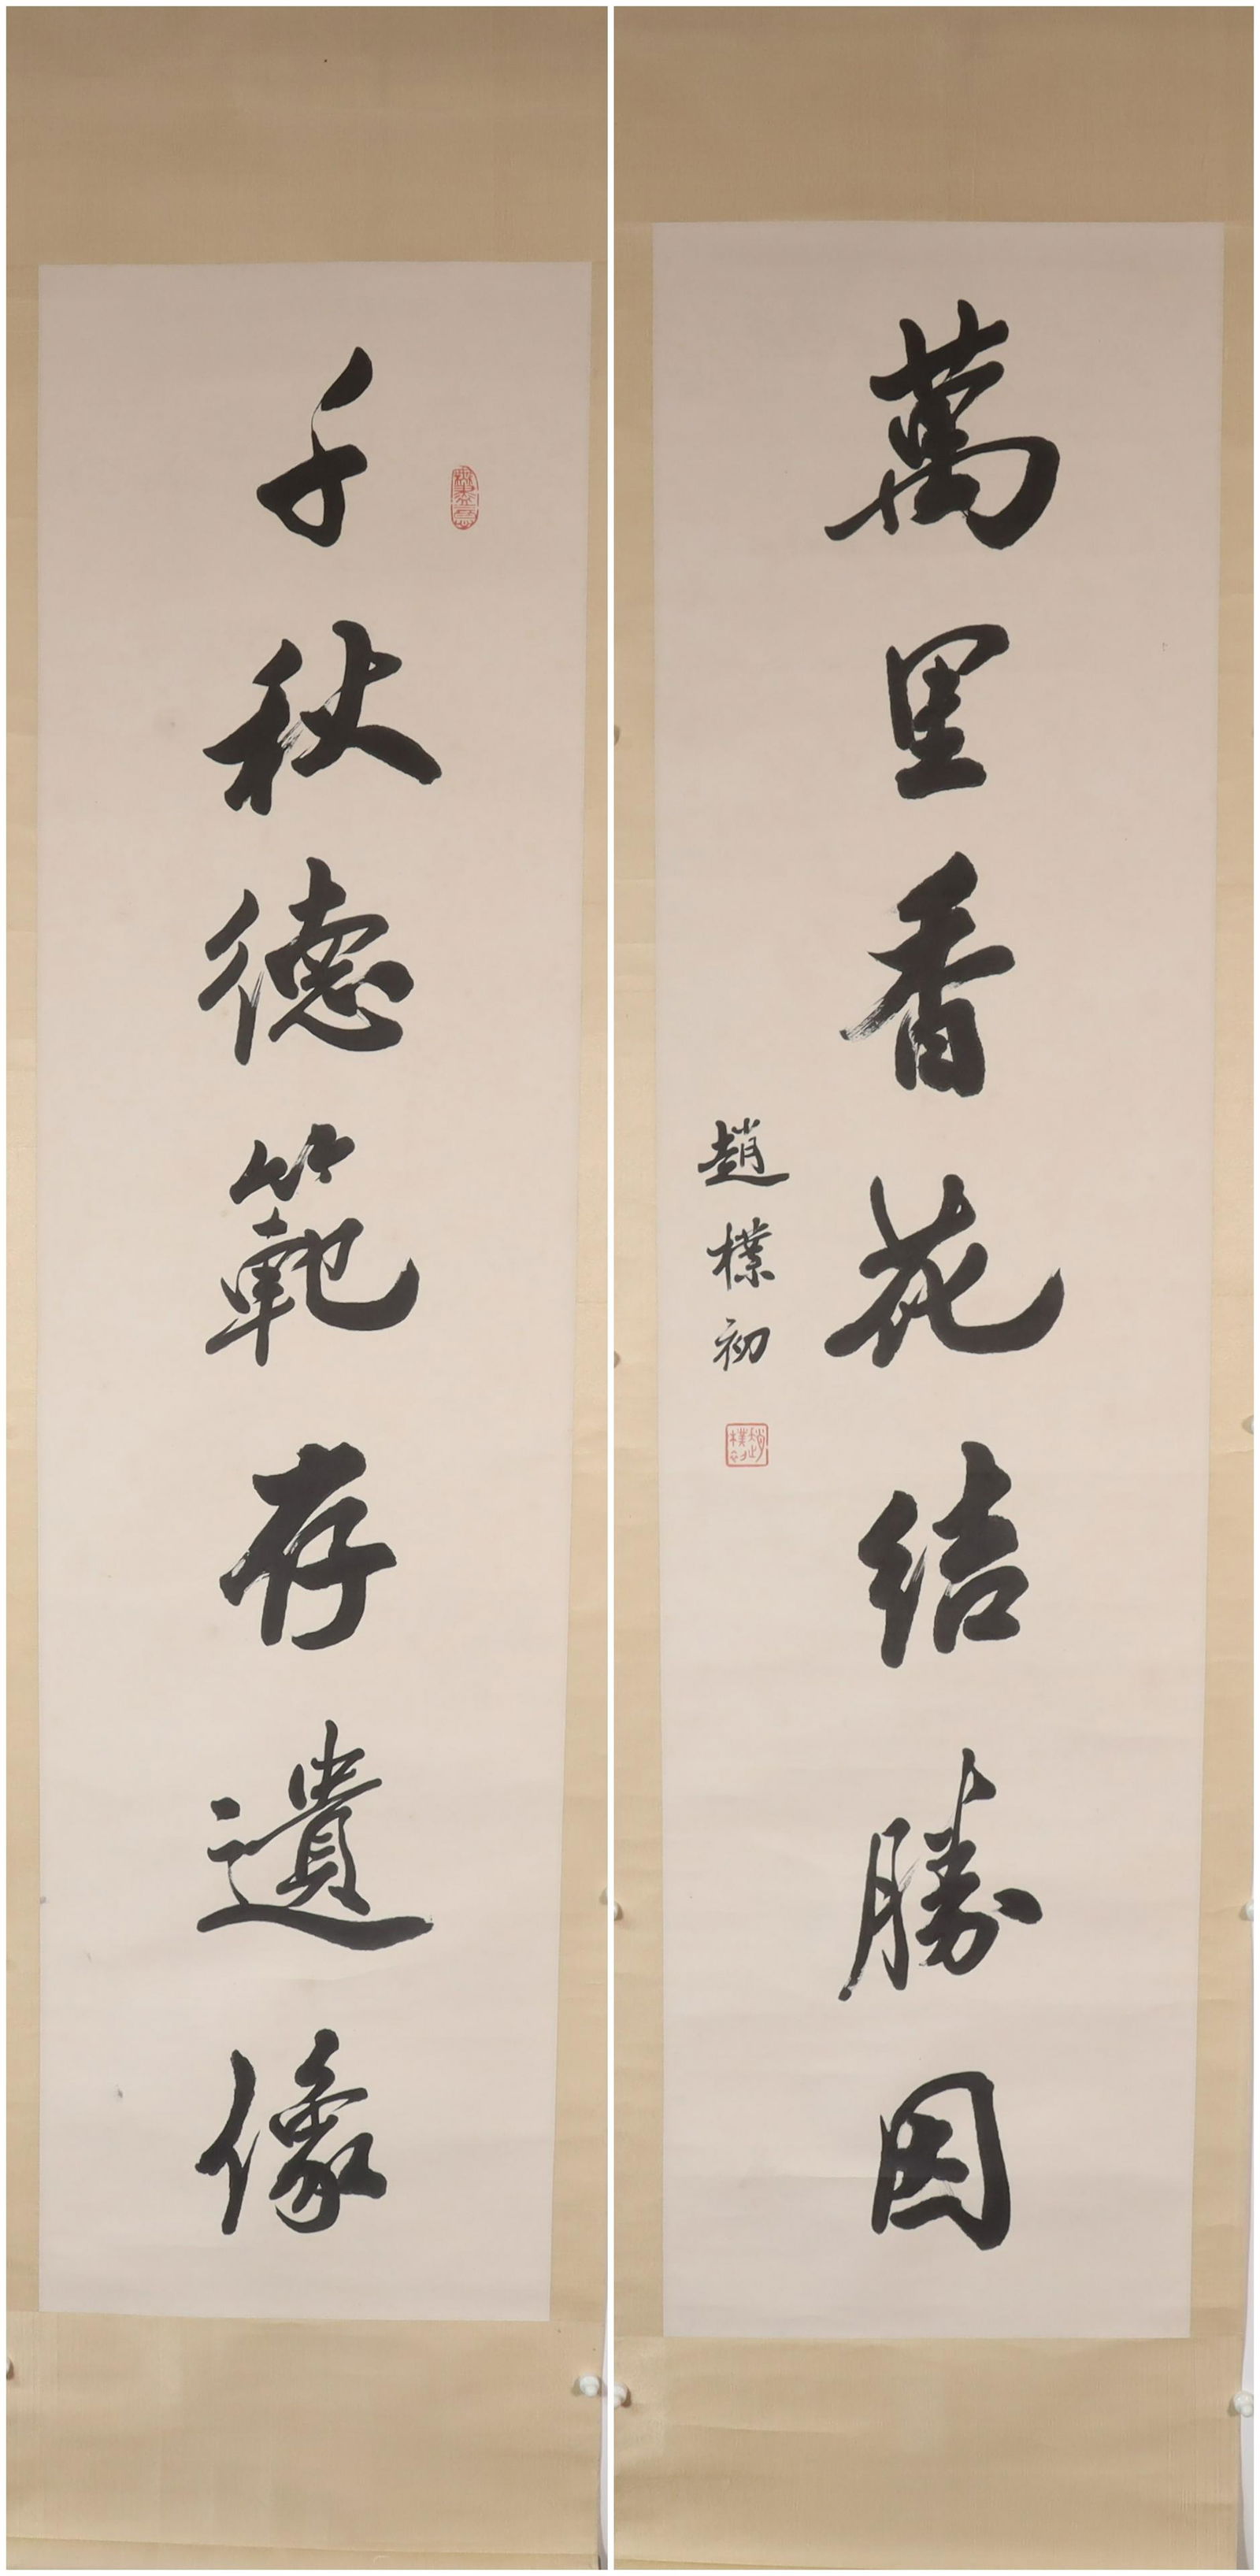 千秋德範存遺像
萬里香花结勝因
趙樸初
趙樸初